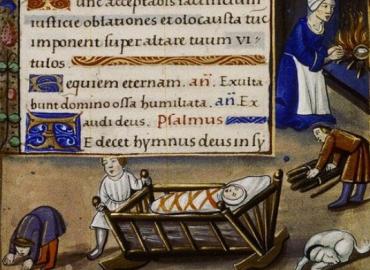 unc acceptabis sacrificium
iusticie oblationes et olocausta tuc
imponent super altare tuum vi
tulos.
Requiem eternam. añ. Exulta
bunt domino ossa humiliata. añ. Ex
audi deus. Psalmus
Te decet hymnus deus in sy